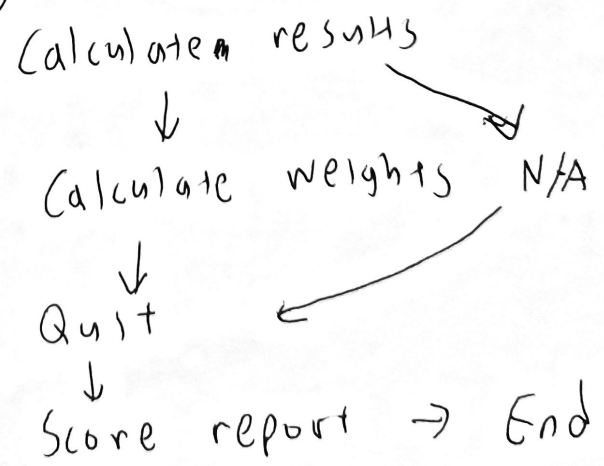 Calculate results
↓
Calculate weights N/A
↓
Quit
↓
Score report → End